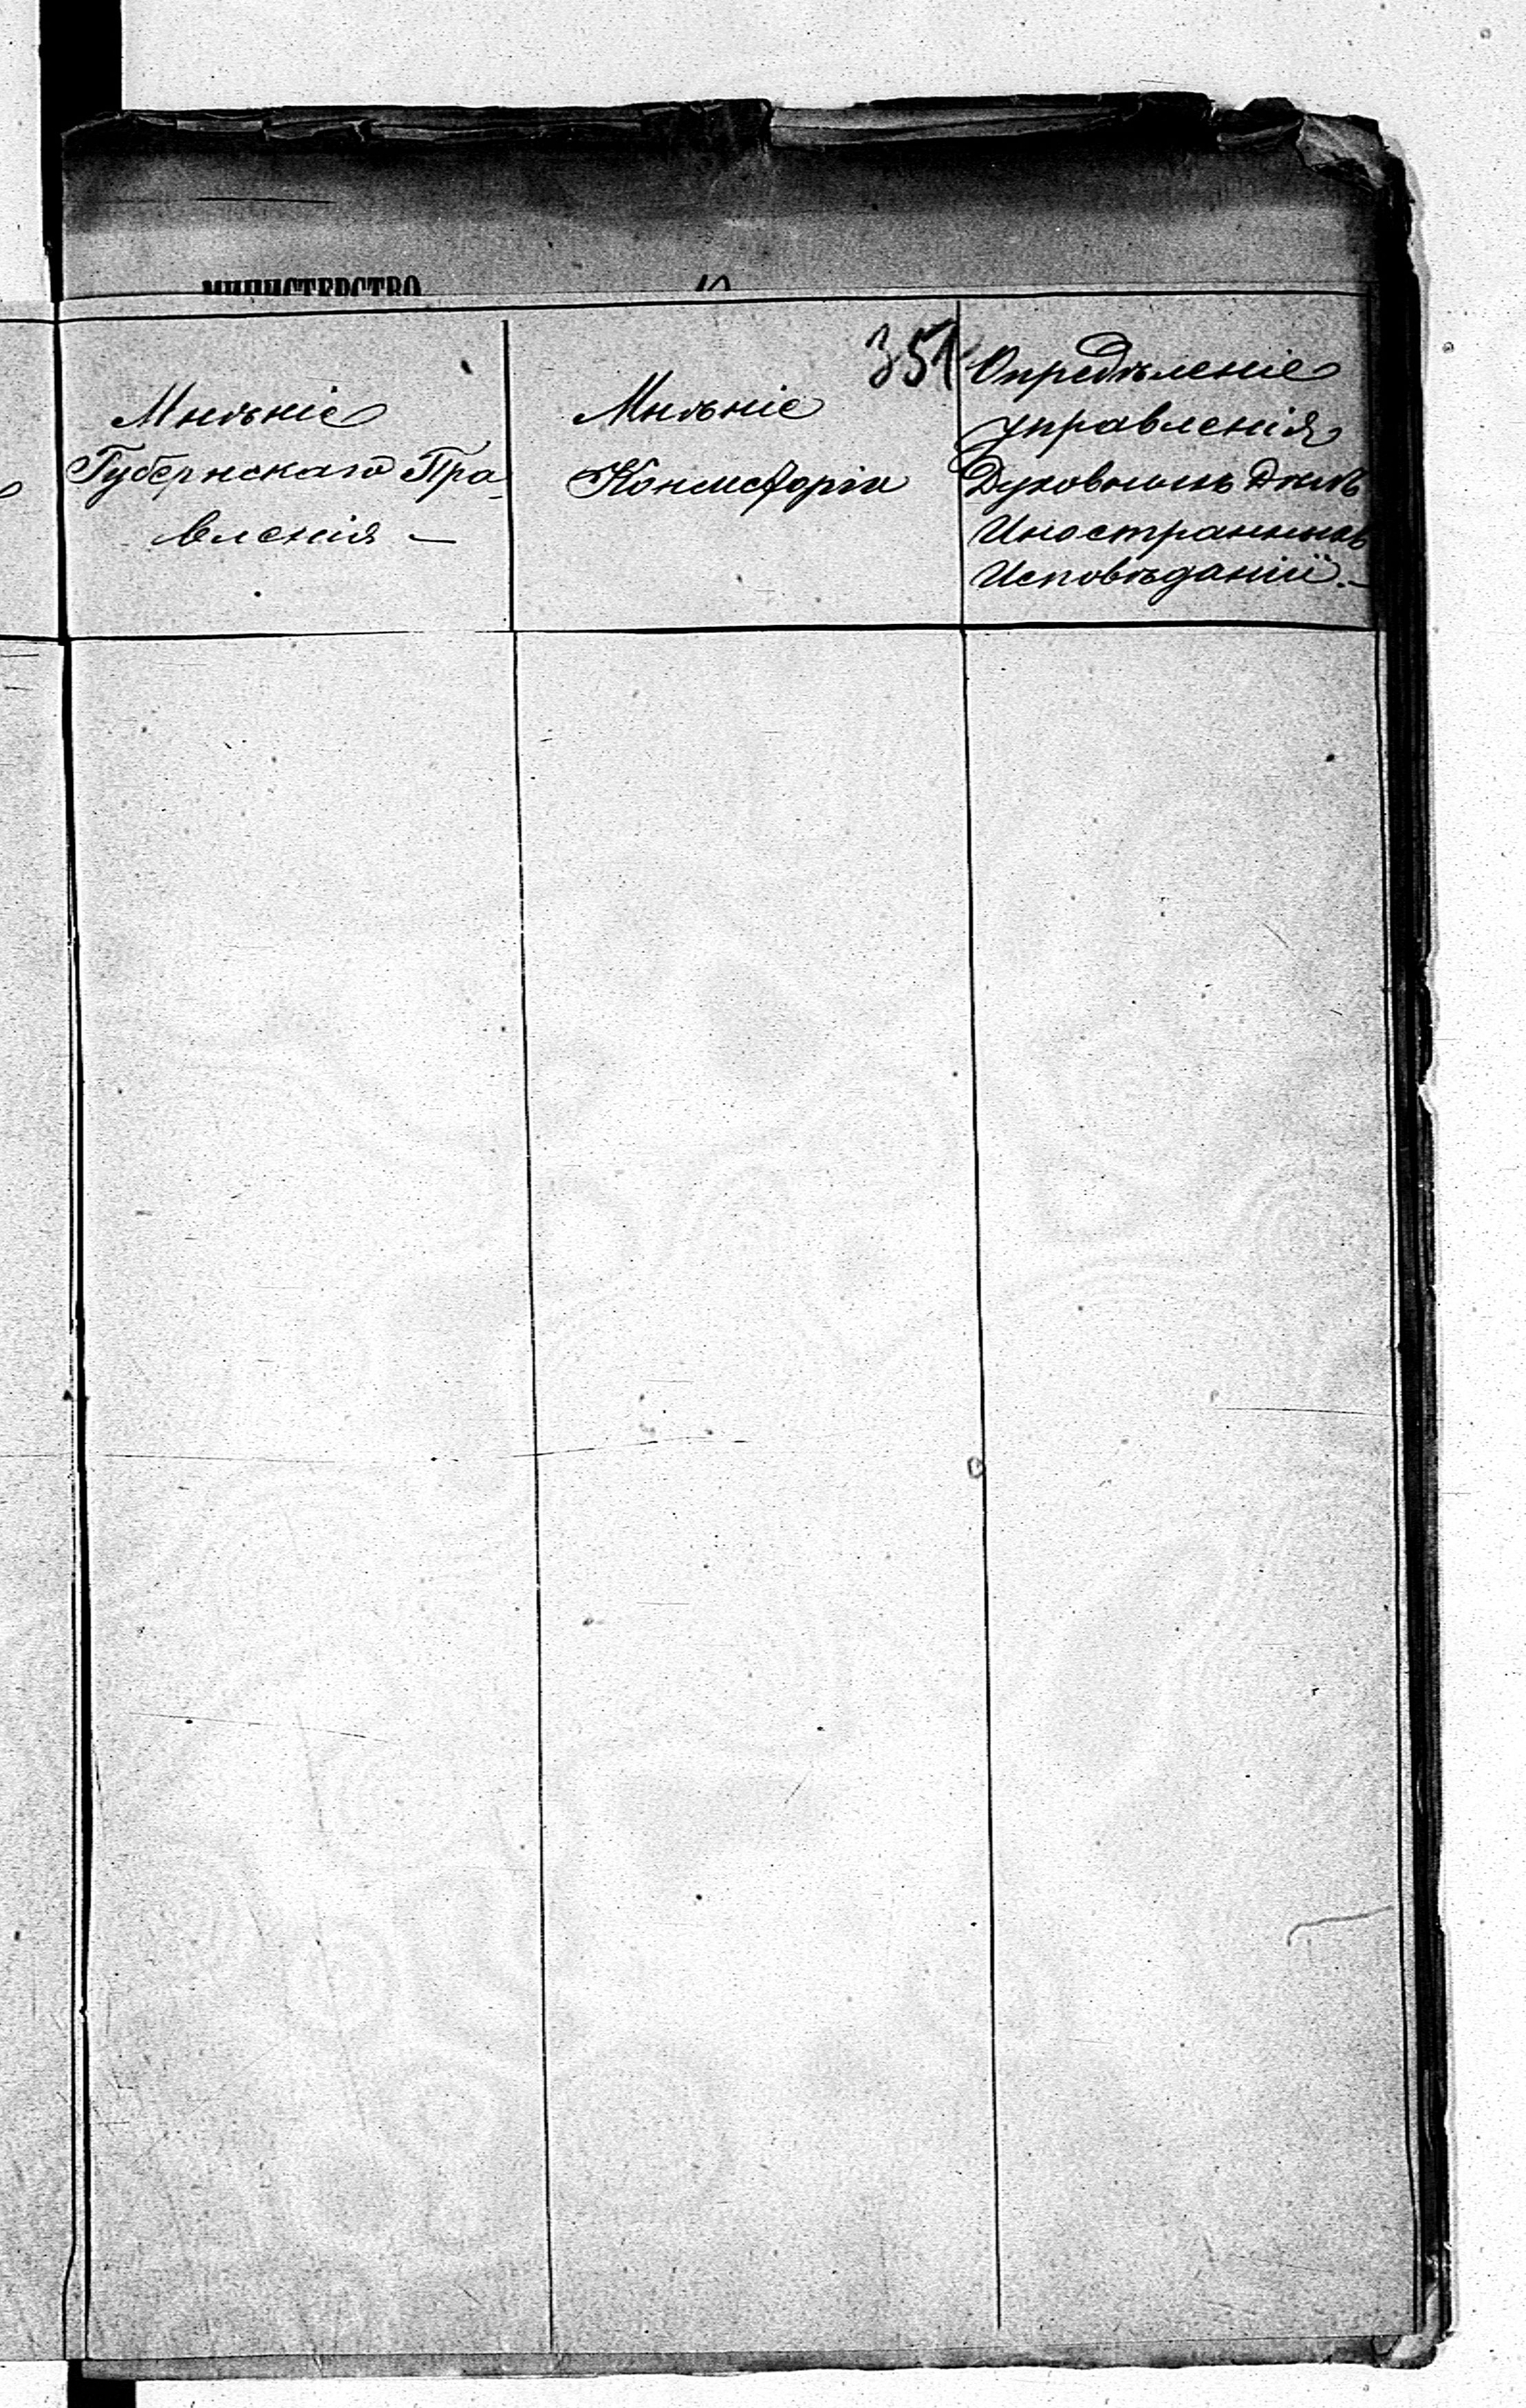 МИНИСТЕРСТВО
351
Мнѣніе
Губернскаго Пра-
вленія —
Мнѣніе
Консисторіи
Опредѣленіе
управленія
Духовныхъ Дѣлъ
Иностранныхъ
Исповѣданій. —